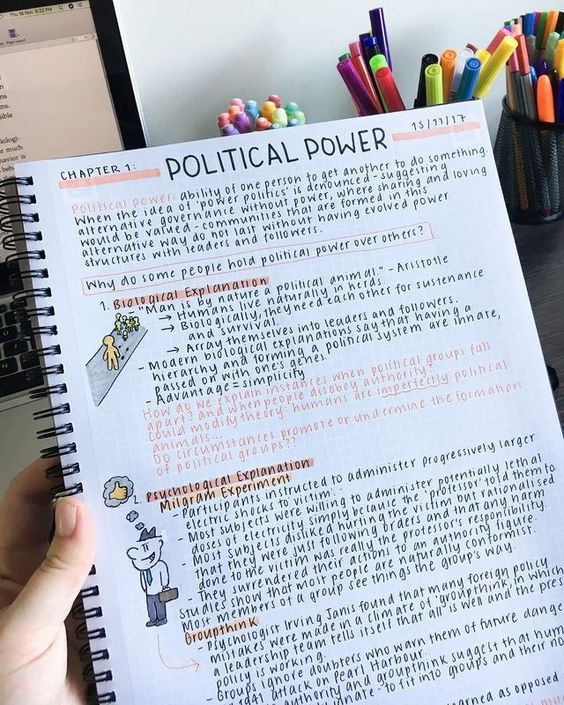 Thu 16 Nov 6:32 PM
CHAPTER 1:
POLITICAL POWER
15/11/17
Political power: ability of one person to get another to do something.
When the idea of 'power politics' is denounced - suggesting
alternative governance without power, where sharing and loving
would be valued - communities that are formed in this
alternative way do not last without having evolved power
structures with leaders and followers.
Why do some people hold political power over others?
1. Biological Explanation
- "Man is by nature a political animal." - Aristotle
→ Humans live naturally in herds.
→ Biologically, they need each other for sustenance
and survival.
→ Array themselves into leaders and followers.
- Modern biological explanations say that having a
hierarchy and forming a political system are innate,
passed on with one's genes.
- Advantage = simplicity
How do we explain instances when political groups fall
apart? and when people disobey authority?
Could modify theory: humans are imperfectly political
animals...
Do circumstances promote or undermine the formation
of political groups??
2. Psychological Explanation
Milgram Experiment
- Participants instructed to administer progressively larger
electric shocks to victim.
- Most subjects were willing to administer potentially lethal
doses of electricity simply because the 'professor' told them to
- Most subjects disliked hurting the victim but rationalised
that they were just following orders and that any harm
done to the victim was really the professor's responsibility.
- They surrendered their actions to an authority figure.
Studies show that most people are naturally conformist.
Most members of a group see things the group's way.
Groupthink
- Psychologist Irving Janis found that many foreign policy
mistakes were made in a climate of 'groupthink, in which
a leadership team tells itself that all is well and the
policy is working.
- Groups ignore doubters who warn of future
1941 attack on Pearl Harbour.
authority and groupthink suggest that
to fit into groups and their
learned as opposed